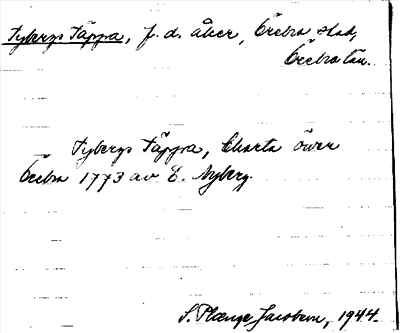 Tybergs Täppa, f. d. åker, Örebro stad,
Örebro län.
Tybergs Täppa, Charta öwer
Örebro 1773 av E. Nyberg.
S. Plænge Jacobson, 1944.